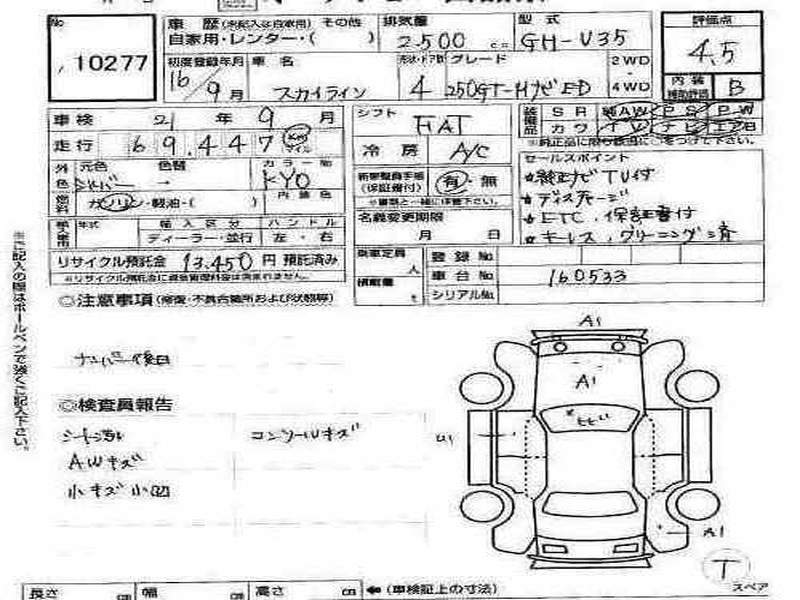 No. 10277
車歴 (未記入は自家用) その他
自家用・レンター・( )
排気量 2500 cc
型式 GH-V35
評価点 4.5
初度登録年月 16/9月
車名 スカイライン
形状・ドア数 4
グレード 250GT-HナビED
2WD・4WD
内装補助評価 B
車検 21年9月
走行 69,447 Km マイル
シフト FAT
冷房 A/C
装備品 SR 純AW PS PW
カワ TV ナビ エアB
※純正品に限り該当に○をつけて下さい。
外色 元色 シルバー 色替 →
カラーNo. KY0
内装色
燃料 ガソリン・軽油・( )
新車整備手帳 (保証書付) 有・無
※書類と一緒に保管下さい。
名義変更期限 月 日
セールスポイント
☆純正ナビTV付
☆ディスチャージ
☆ETC、保証書付
☆キーレス、クリーニング済
輸入車用 年式 輸入区分 ディーラー・並行 ハンドル 左・右
リサイクル預託金 13,450円 預託済み
※リサイクル預託金に資金管理料金は含まれません。
乗車定員 人
積載量 t
登録No.
車台No. 160533
シリアルNo.
◎注意事項 (修復・不具合箇所および状態等)
ナンバー後日
◎検査員報告
シート汚れ
コンソールキズ
AWキズ
小キズ小凹
A1
A1
U1
A1
T
スペア
※ご記入の際はボールペンで強くご記入下さい。
長さ cm 幅 cm 高さ cm ←(車検証上の寸法)